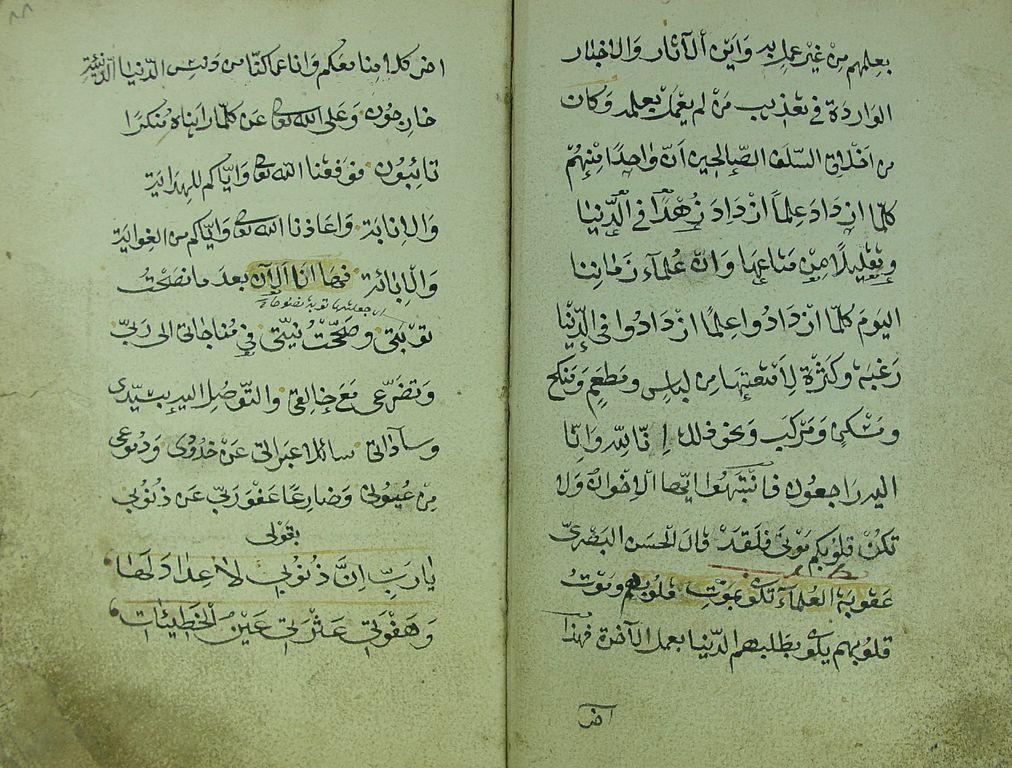 بعلمهم من غير عمل به واين الآثار والاخبار
الواردة في تعذيب من لم يعمل بعلمه وكان
من اخلاق السلف الصالحين انّ واحِدًا مِنهُم
كلّما ازداد عِلماً ازداد زُهدًا في الدّنيا
وتقليلًا مِن متاعها وانّ علمآء زماننا
اليومَ كلّما ازدادوا عِلمًا ازدادوا في الدّنيا
رَغبَةً وكثرة لِأمتعتها من لباسٍ ومَطعَمٍ ومَنكح
ومَسْكنٍ ومَركَبٍ ونحو ذلك إنّا لِلّه وَانّا
اليه راجعون فانتَبَهُوا ايّها الاِخوان ولا
تكن قلوبكم مَوتى فلقد قال الحَسَن البَصْرىّ
عقوبة العُلماء تكون بمَوت قلوبهم ومَوتُ
قلوبهم يكون بطلبهم الدّنيا بعمل الآخرة فهذا
آخر
٨٨
آخر كلامنا معكم وانا عما كنّا من دنس الدّنيا الدّنيئة
خارجون وَعلى الله تعالى عن كلّما رايناه مُنكرًا
تائبُون فوفقنا الله تعالى وايّاكم للهِدَايَة
وَالاِنابَة وَاعاذنا الله تعالى وَايّاكم من الغِوايَة
فها انا الآن بعدَ ما نصَحْتُ
توبتى وصَحّحْتُ نيّتى في مُناجاتى الى رَبّى
وتضرّعى مَعَ خالقى والتّوصّل اليه بسَيّدى
وسآداتى سائلا عبَراتى عَنْ خدُودى ودُمُوعى
مِن عُيُونى وضارِعًا عفو رَبّى عَن ذنُوبى
بقولى
يا رَبِّ اِنَّ ذنُوبى لا عِدادَ لَها
وَهَفْوَتى عَثْرَتى عَيْنُ الخَطِيئات